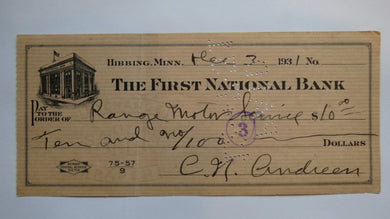 HIBBING, MINN. Dec 3 1931 No.
THE FIRST NATIONAL BANK
PAY TO THE ORDER OF Range Motor Service $10.00
Ten and no/100 DOLLARS
3
75-57
9
C. N. Andreen